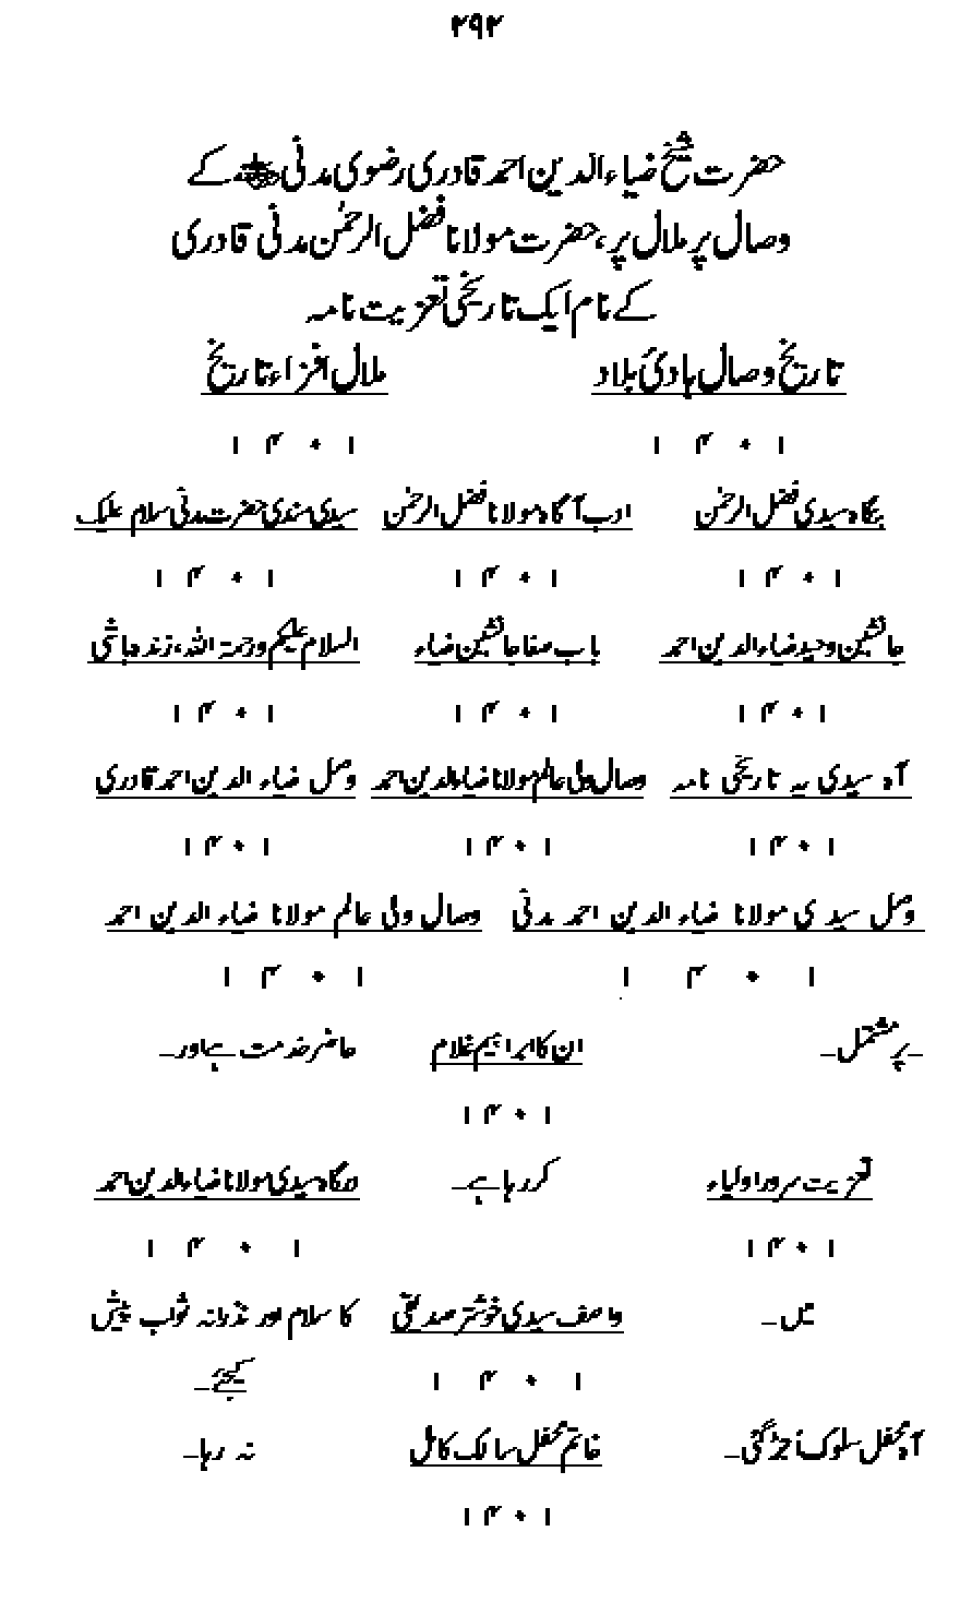 ۲۹۲
حضرت شیخ ضیاء الدین احمد قادری رضوی مدنی کے
وصال پر ملال پر، حضرت مولانا فضل الرحمٰن مدنی قادری
کے نام ایک تاریخی تعزیت نامہ
تاریخ وصال ہادیٔ بلاد ملال افزاء تاریخ
۱۴۰۱ ۱۴۰۱
بنگاہ سیدی فضل الرحمٰن ادب آگاہ مولانا فضل الرحمٰن سیدی سندی حضرت مدنی سلام علیک
۱۴۰۱ ۱۴۰۱ ۱۴۰۱
جانشین وحید ضیاء الدین احمد باب صفا جانشین ضیاء السلام علیکم ورحمۃ اللہ، زندہ باشی
۱۴۰۱ ۱۴۰۱ ۱۴۰۱
آہ سیدی یہ تاریخی نامہ وصال ولی عالم مولانا ضیاء الدین احمد وصل ضیاء الدین احمد قادری
۱۴۰۱ ۱۴۰۱ ۱۴۰۱
وصل سیدی مولانا ضیاء الدین احمد مدنی وصال ولی عالم مولانا ضیاء الدین احمد
۱۴۰۱ ۱۴۰۱
۔پر مشتمل۔ ان کا ابراہیم غلام حاضر خدمت ہے اور۔
۱۴۰۱
تعزیت سرور اولیاء کر رہا ہے۔ درگاہ سیدی مولانا ضیاء الدین احمد
۱۴۰۱ ۱۴۰۱
میں۔ واصف سیدی خوشتر صدیقی کا سلام اور نذرانہ ثواب پیش
۱۴۰۱ کیجئے۔
آہ محفل سلوک اُجڑ گئی۔ خاتم محفل سالک کامل نہ رہا۔
۱۴۰۱